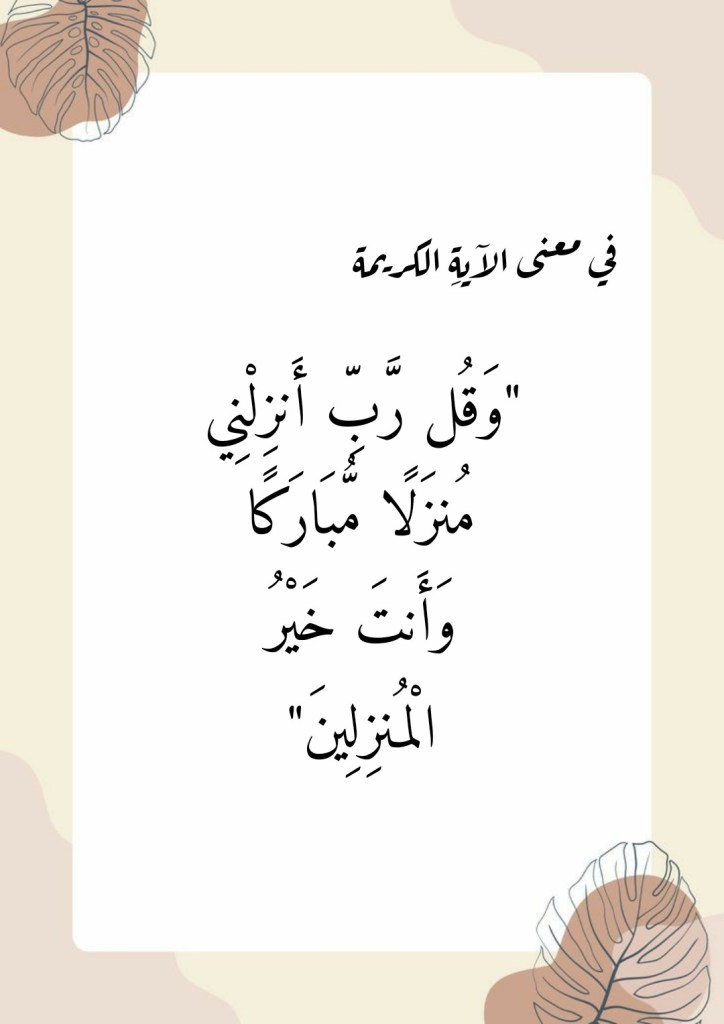 في معنى الآيةِ الكريمة
"وَقُل رَّبِّ أَنزِلْنِي
مُنزَلًا مُّبَارَكًا
وَأَنتَ خَيْرُ
الْمُنزِلِينَ"